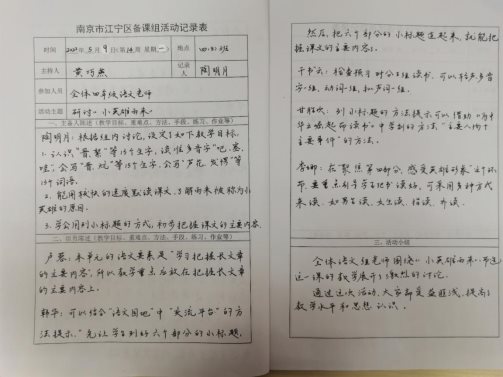 南京市江宁区备课组活动记录表
时间 2022年5月9日(第14周 星期一) 地点 四(3)班
主持人 黄巧燕 记录人 陶明月
参加人员 全体四年级语文老师
活动主题 研讨《小英雄雨来》
一、主备人陈述(教学目标、重难点、方法、手段、练习、作业等)
陶明月:根据组内讨论,设定了如下教学目标。
1、认识“晋、絮”等15个生字,读准多音字“吧、塞、
哇”,会写“晋、炕”等15个生字,会写“芦花、发愣”等
13个词语。
2、能用较快的速度默读课文,了解雨来被称为小
英雄的原因。
3、学会用列小标题的方式,初步把握课文的主要内容。
二、组员陈述(教学目标、重难点、方法、手段、练习、作业等)
卢蓉:本单元的语文要素是“学习把握长文章
的主要内容”,所以教学重点应放在把握长文章
的主要内容上。
韩华:可以结合“语文园地”中“交流平台”的方
法提示,“先让学生列好六个部分的小标题,
然后,把六个部分的小标题连起来,就能把
握课文的主要内容了。
干书云:检查预习时分生组读书,可以轻声、多音
字一组,动词一组,拟声词一组。
甘胜次:列小标题的方法提示可以借助《为中
华之崛起而读书》中学到的方法,“主要人物+
主要事件”的方法。
李娜:在“聚焦第四部分,感受英雄形象”这个环
节,要重点引导学生把书读好,可采用多种方式
来读,如男生读、女生读、指读、齐读。
三、活动小结
全体语文组老师围绕《小英雄雨来》
这一课的教学展开了激烈的讨论。
通过这次活动,大家都受益匪浅,提高了
教学水平和思想认识。